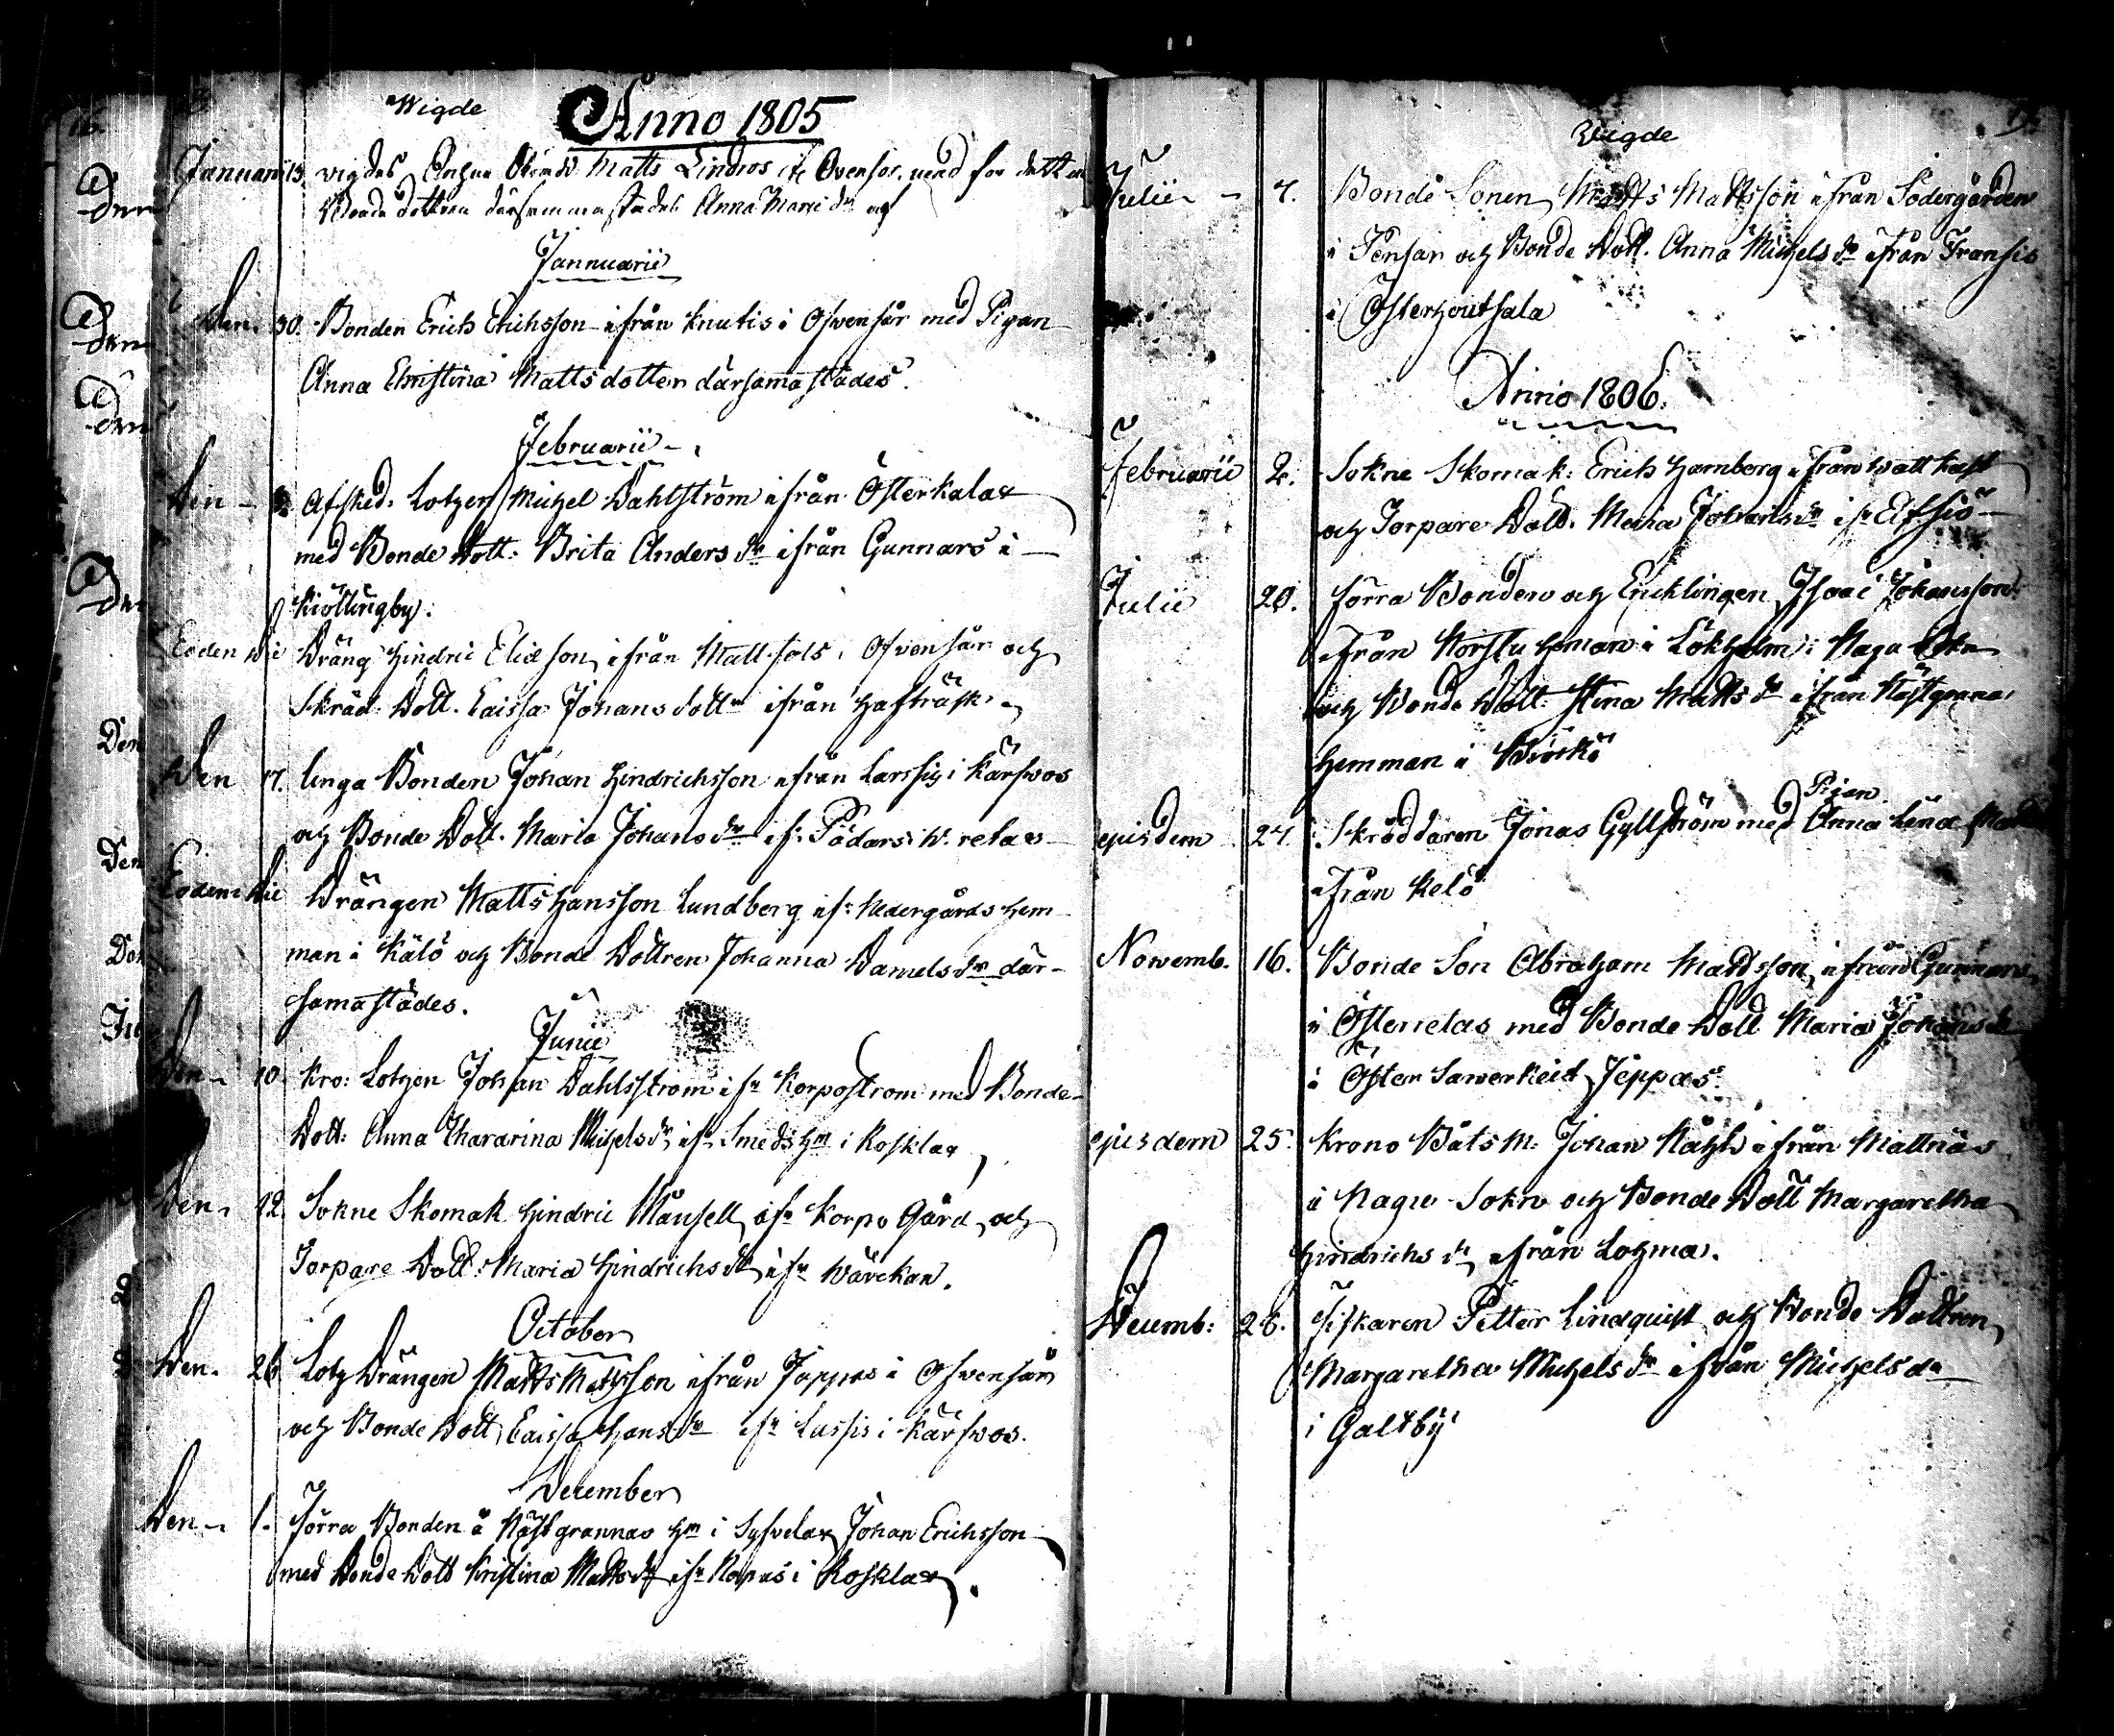 Wigde
Anno 1805
Januari 13. vigdes Matts Lindros med
Bonde dottren därsammastädes Anna Marie dr
Jannuarii
Den 30. Bonden Erich Erichsson ifrån Knutis i Ofvensår med Pigan
Anna Christina Mattsdotter därsamastädes.
Februarii
Den Afsked: Lotzen Michel Dahlström ifrån Österkalax
med Bonde Dott: Brita Anders dr ifrån Gunnars i
Kiöttingby.
Eodem Die Dräng Hindric Eliæson ifrån Matt i Ofvensår och
Skräd. Dott. Caissa Johans dottr ifrån Hafträsk
Den 17. Unga Bonden Johan Hindrichsson ifrån Larsis i Kärfwos
och Bonde Dott. Maria Johans dr ifr Pädars i W. retas
Eodem Die Drängen Matts Hansson Lundberg ifr Nedergårds Hem
man i Kälö och Bonde Dottren Johanna Daniels dr där-
samastädes.
Junii
Den 10. Kro: Lotzen Johan Dahlström ifr Korpoström med Bonde
Dott: Anna Chatarina Michels dr ifr Smeds Hm i Rosklax
Den 12. Sokne Skomak Hindric Månsell ifr Korpo Gård och
Torpare Dott: Maria Hindrichs dr ifr Wärckan.
October
Den 26 Lotz Drängen Matts Mattsson ifrån Jappas i Ofvensår
och Bonde Dott Caissa Hans dr ifr Lassis i Kärfwos.
December
Den 1. Förra Bonden å Nästgrannas Hm i Syfvelax Johan Erichsson
med Bonde Dott Kristina Matts dr ifr Napas i Rosklax.
Wigde
Julii 7. Bonde Sonen Matts Mattsson ifrån Södergården
i Pensar och Bonde Dott. Anna Michels dr ifrån Fransis
i Österhoutsala
Anno 1806.
Februarii 2. Sokne Skomak: Erich Hamberg ifrån Wattkast
och Torpare Dott. Maria Johans dr ifr Elfsiö
Julii 20. Förra Bonden och Encklingen Isaac Johansson
ifrån Norstu Heman i Lökholm i Nagu Sokn
och Bonde Dott: Stina Matts dr ifrån Nästgranna
Hemman i Björkö
Pigan
ejusdem 27. Skräddaren Jonas Gyllström med Anna Lena
ifrån Kelö
Novemb. 16. Bonde Son Abraham Mattsson ifrån Gunnars
i Österretas med Bonde Dott Maria Johans dr
i Öster Sawerkeit Jeppas.
ejusdem 25. Krono Båtsm: Johan Nätzh ifrån Mattnäs
i Nagu Sokn och Bonde Dott Margaretha
Hindrichs dr ifrån Lotzma.
Decemb: 28. Fiskaren Petter Lindquist och Bonde Dottren
Margaretha Michels dr ifrån Michels
i Galtby